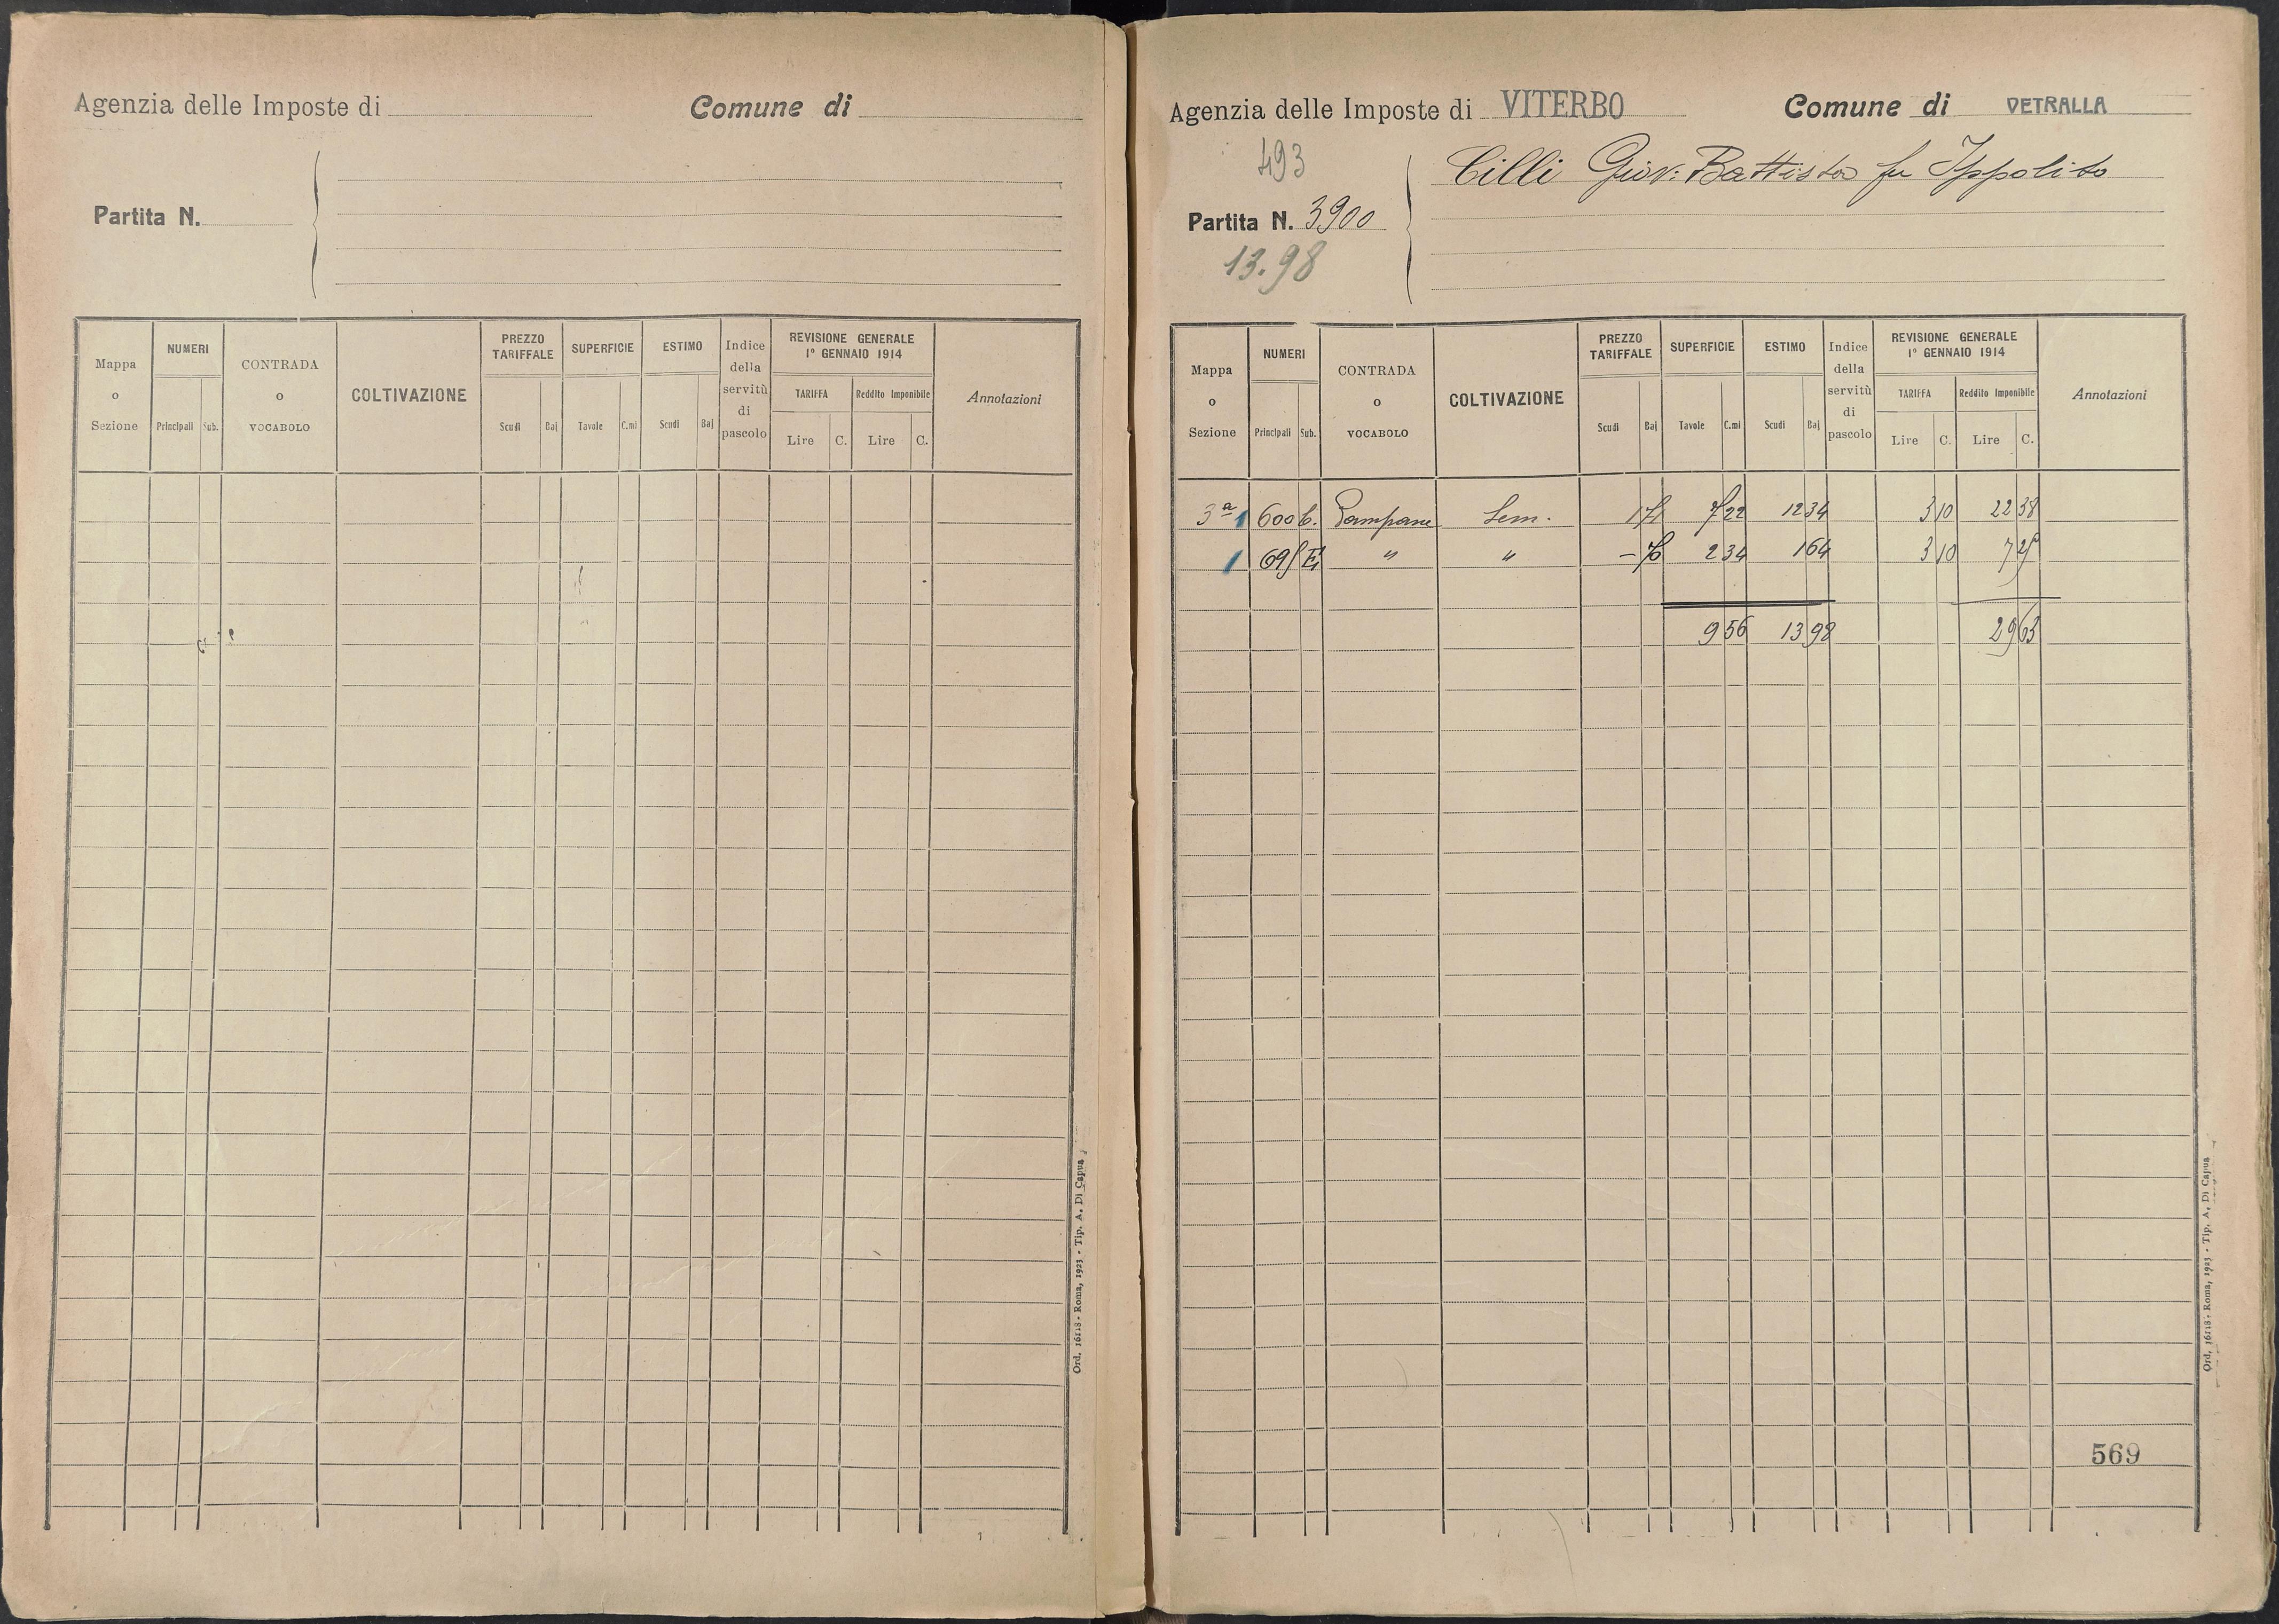 Agenzia delle Imposte di Comune di
Partita N.
Mappa o Sezione NUMERI Principali Sub. CONTRADA o VOCABOLO COLTIVAZIONE PREZZO TARIFFALE Scudi Baj SUPERFICIE Tavole C.mi ESTIMO Scudi Baj Indice della servitù di pascolo REVISIONE GENERALE 1° GENNAIO 1914 TARIFFA Lire C. Reddito Imponibile Lire C. Annotazioni
Ord. 16118 - Roma, 1923 - Tip. A. Di Capua
Agenzia delle Imposte di VITERBO Comune di VETRALLA
493
Cilli Giov: Battista fu Ippolito
Partita N. 3900
13.98
Mappa o Sezione NUMERI Principali Sub. CONTRADA o VOCABOLO COLTIVAZIONE PREZZO TARIFFALE Scudi Baj SUPERFICIE Tavole C.mi ESTIMO Scudi Baj Indice della servitù di pascolo REVISIONE GENERALE 1° GENNAIO 1914 TARIFFA Lire C. Reddito Imponibile Lire C. Annotazioni
3ª 1 600 b. Sem. 1 71 7 22 12 34 3 10 22 38
1 695 " " - 70 2 34 1 64 3 10 7 25
9 56 13 98 29 63
569
Ord. 16118 - Roma, 1923 - Tip. A. Di Capua